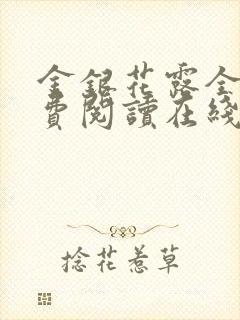 金銀花露全
費閱讀在綫
捻花惹草